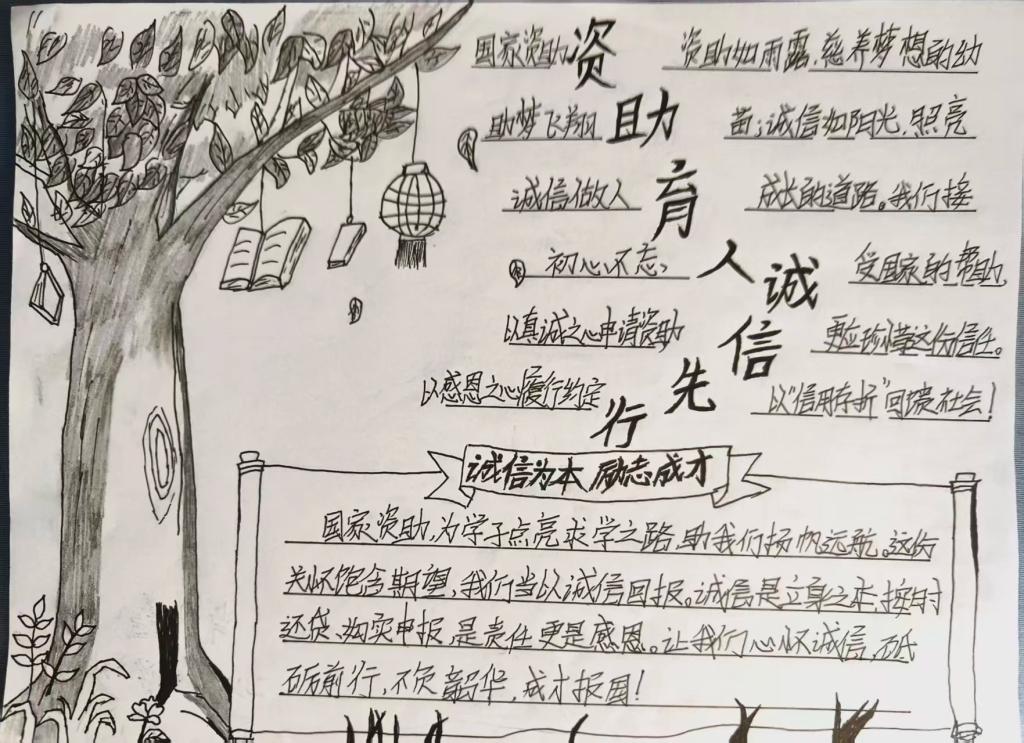 资助育人诚信先行
国家资助
助梦飞翔
诚信做人
初心不忘、
以真诚之心申请资助
以感恩之心履行约定
资助如雨露，慈养梦想的幼
苗；诚信如阳光，照亮
成长的道路。我们接
受国家的帮助，
更应珍惜这份信任。
以“信用存折”回馈社会！
诚信为本 励志成才
国家资助，为学子点亮求学之路，助我们扬帆远航。这份
关怀饱含期望，我们当以诚信回报。诚信是立身之本，按时
还贷、如实申报，是责任更是感恩。让我们心怀诚信，砥
砺前行，不负韶华，成才报国！